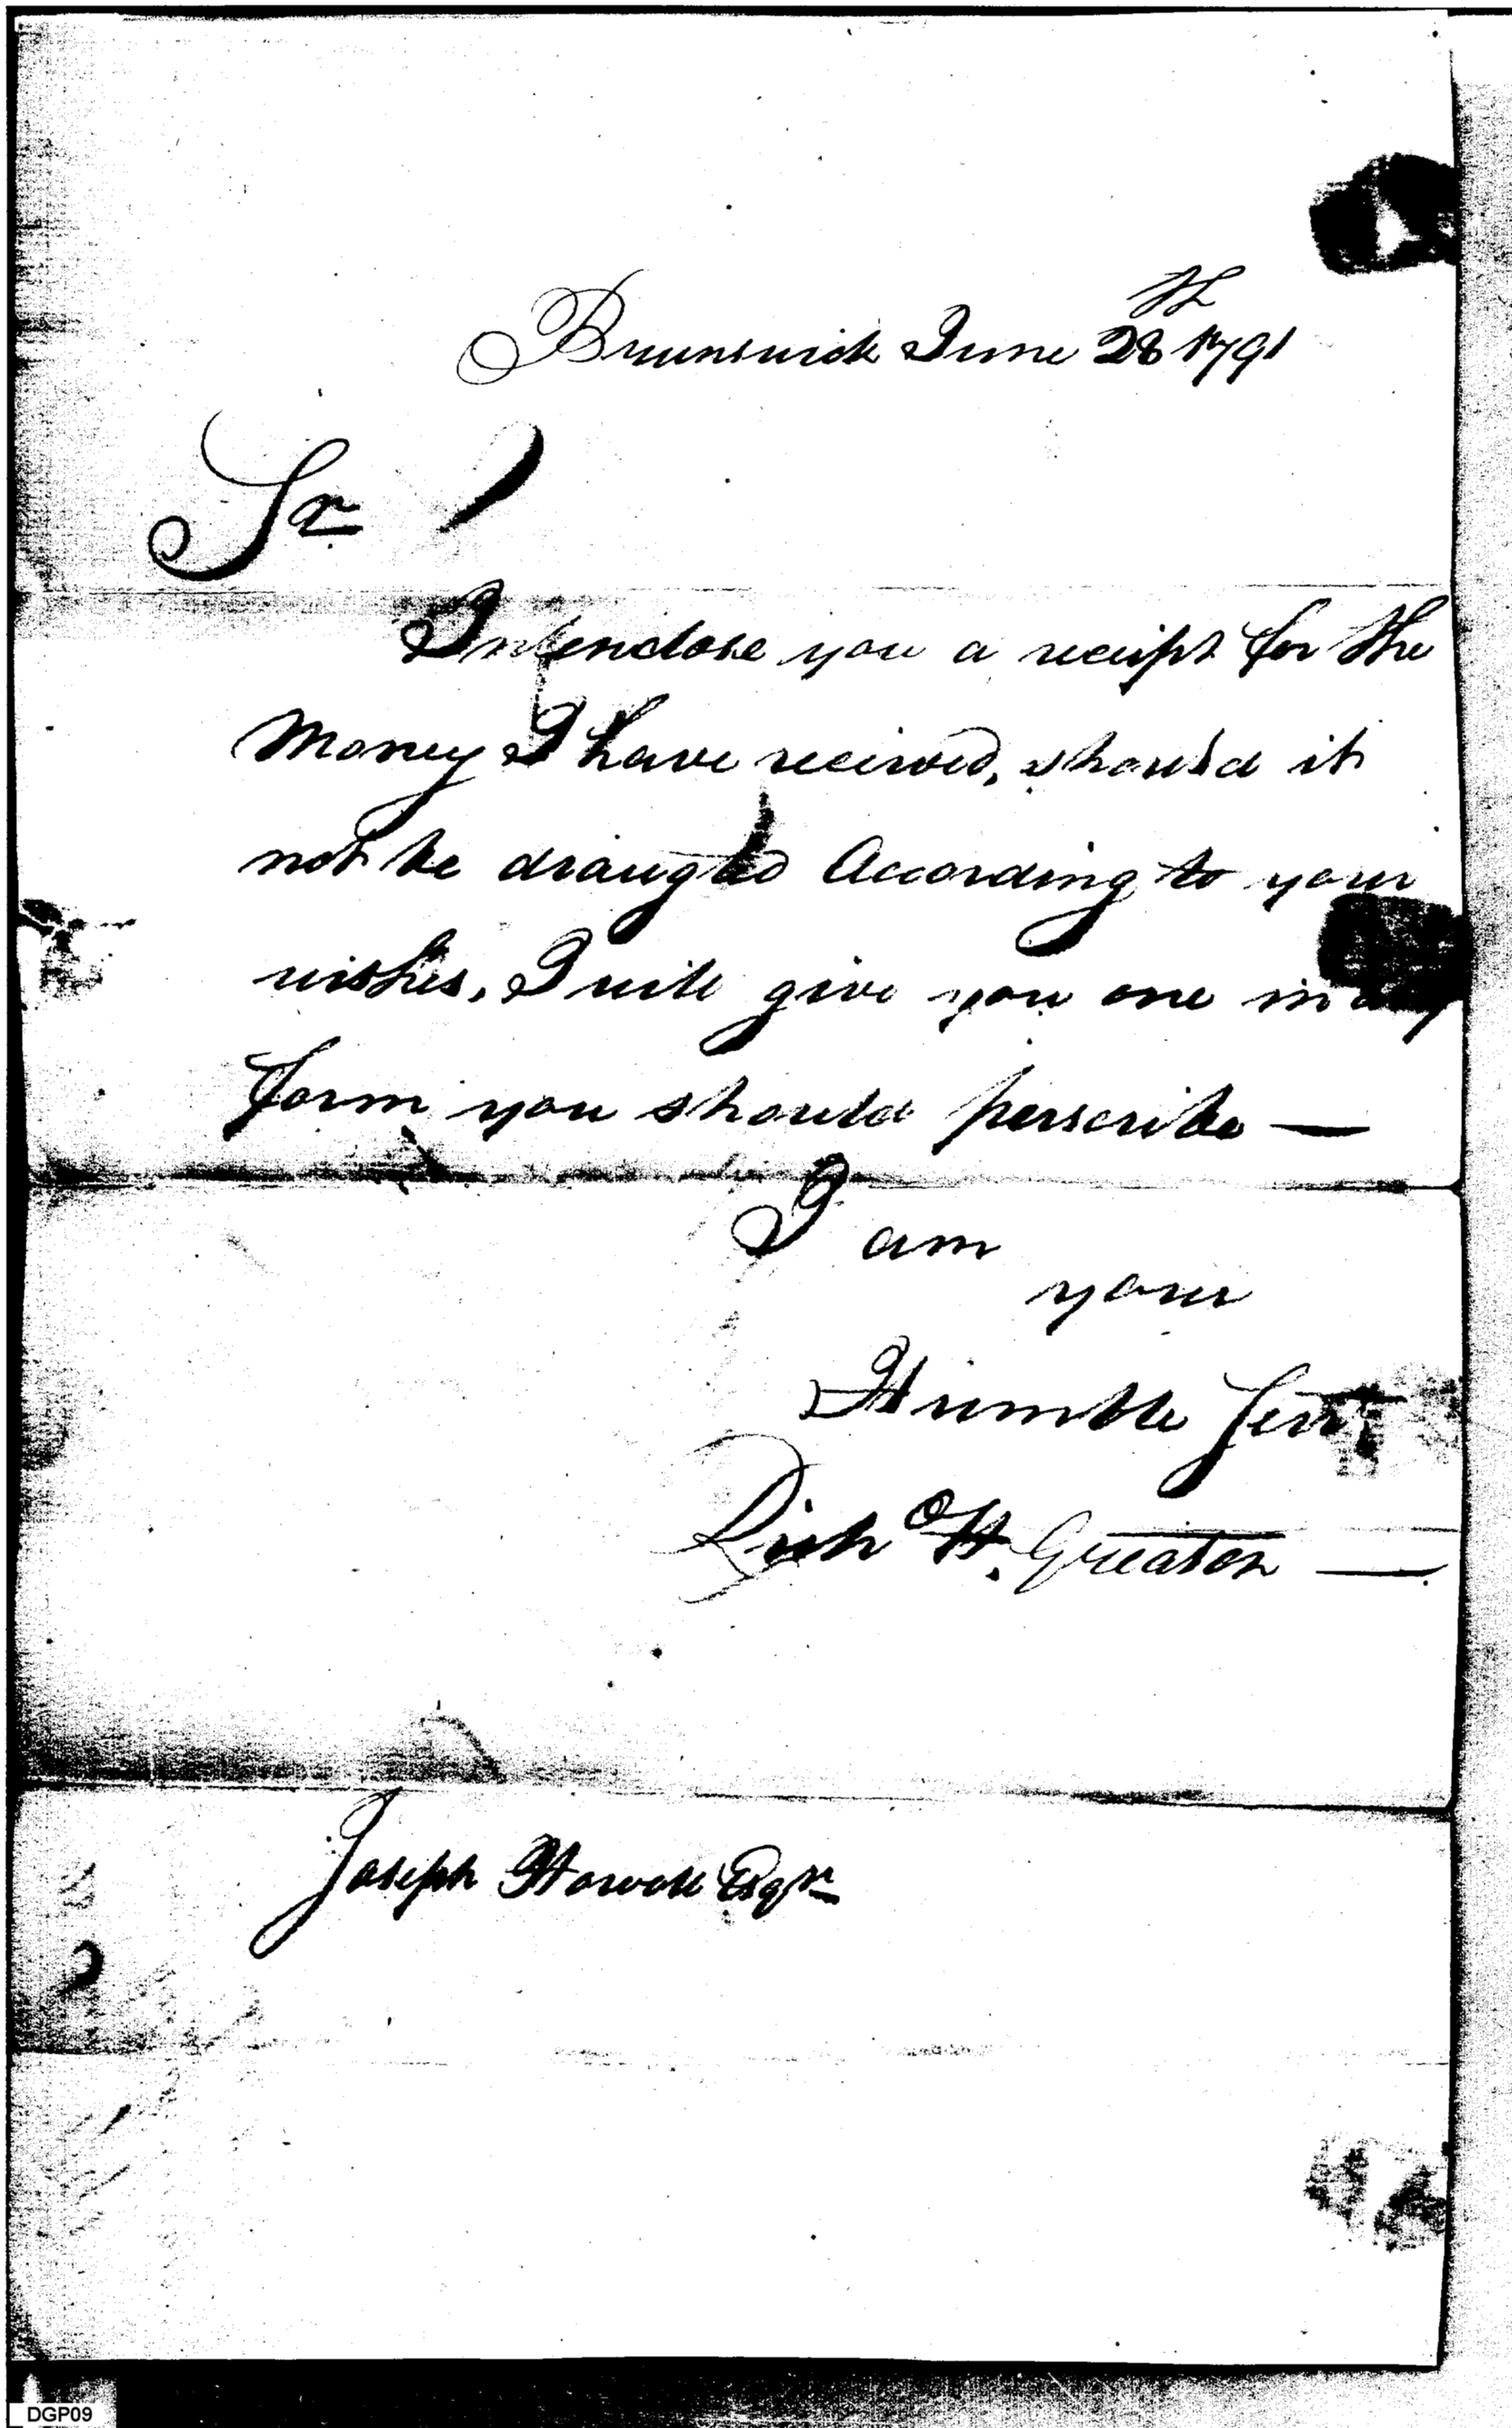 Brunswick June 28th 1791
Sr
I enclose you a receipt for the
Money I have received, should it
not be draugted According to your
wishes, I will give you one in any
form you should perscribe —
I am
your
Humble Servt
Richd H. Greaton —
Joseph Howell Esqr
DGP09